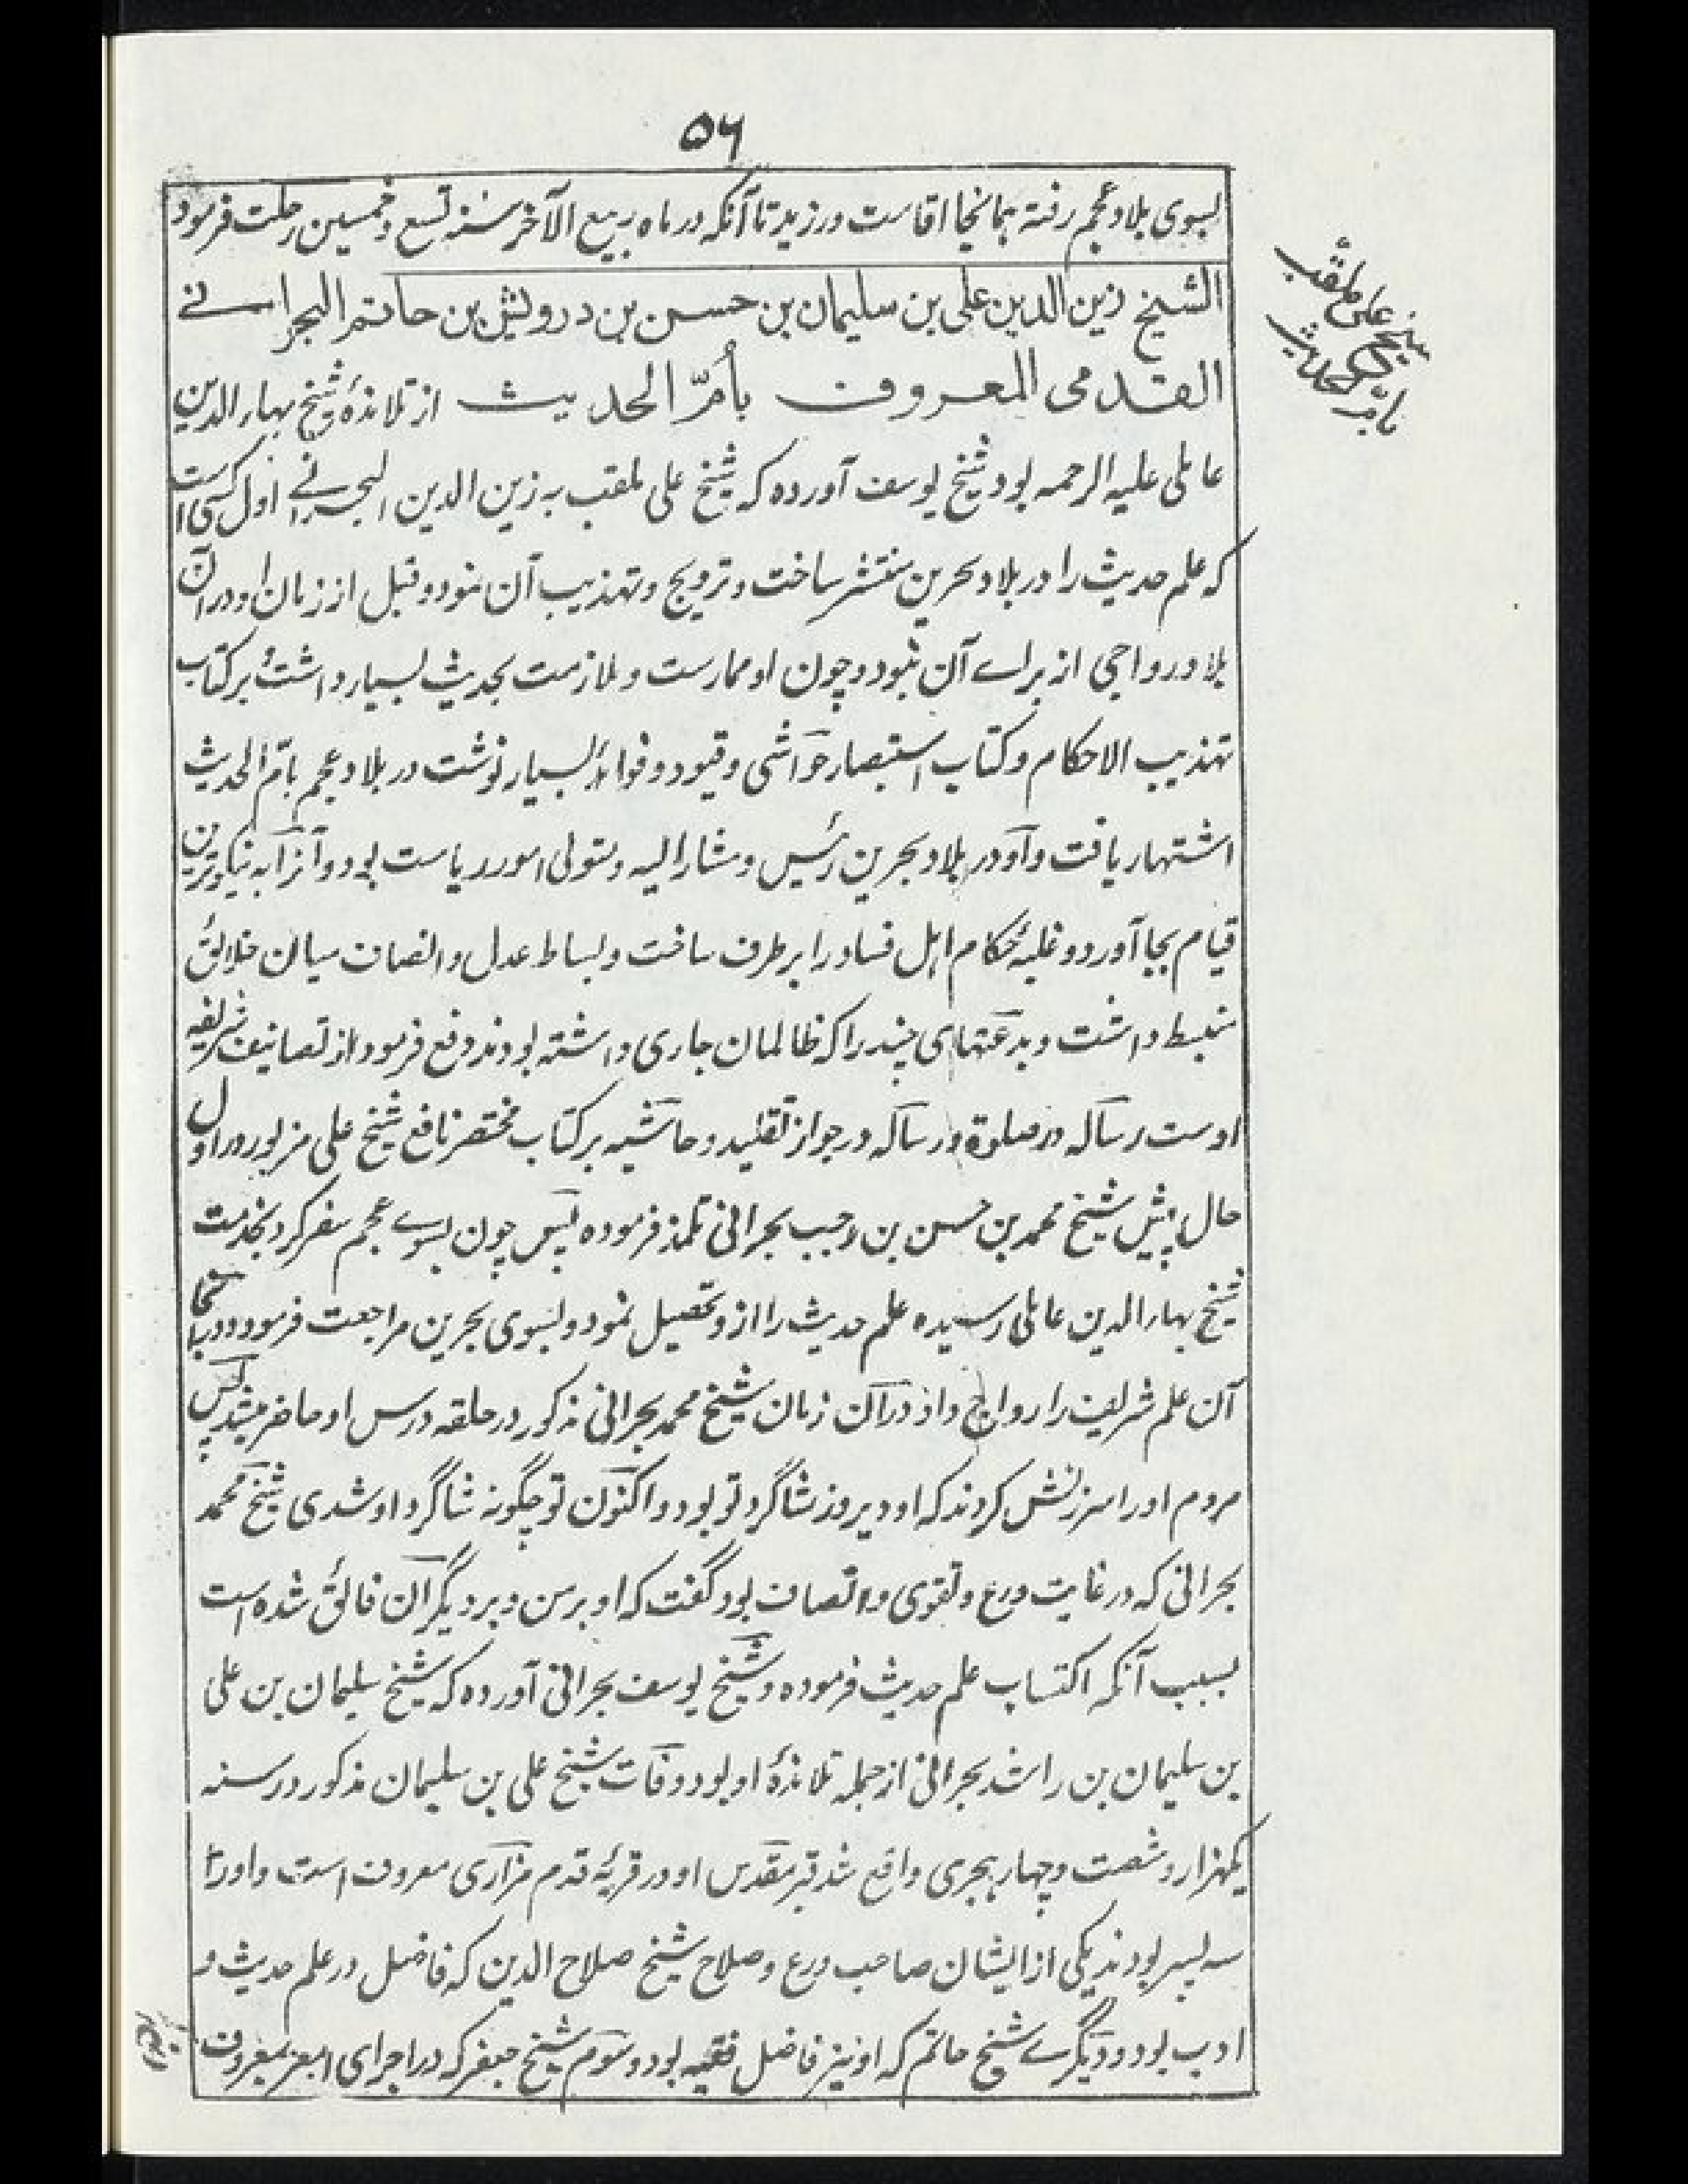 ۵۶
بسوی بلاد عجم رفته بهمانجا اقامت ورزید تا آنکه در ماه ربیع الآخر سنه تسع و خمسین رحلت فرمود
الشیخ زین الدین علی بن سلیمان بن حسن بن درویش بن حاتم البحرانے
القدمی المعروف بأمّ الحدیث از تلامذهٔ شیخ بهاء الدین
عاملی علیه الرحمه بود شیخ یوسف آورده که شیخ علی ملقب به زین الدین البحرانے اول کسی است
که علم حدیث را در بلاد بحرین منتشر ساخت و ترویج و تهذیب آن نمود و قبل از زمان او در آن
بلاد رواجی از براے آن نبود و چون او ممارست و ملازمت بحدیث بسیار داشت و بر کتاب
تهذیب الاحکام و کتاب استبصار حواشی و قیود و فوائد بسیار نوشت در بلاد عجم بامّ الحدیث
اشتهار یافت و او در بلاد بحرین رئیس و مشار الیه و متولی امور ریاست بود و آنرا به نیکوترین
قیام بجا آورد و غلبهٔ حکام اهل فساد را برطرف ساخت و بساط عدل و انصاف میان خلائق
منبسط داشت و بدعتهای چند را که ظالمان جاری داشته بودند دفع فرمود از تصانیف شریفه
اوست رساله در صلوة و رساله در جواز تقلید و حاشیه بر کتاب مختصر نافع شیخ علی مزبور در اول
حال پیش شیخ محمد بن حسن بن رجب بحرانی تلمذ فرموده پس چون بسوے عجم سفر کرد بخدمت
شیخ بهاء الدین عاملی رسیده علم حدیث را از و تحصیل نمود و بسوی بحرین مراجعت فرمود و در آنجا
آن علم شریف را رواج داد در آن زمان شیخ محمد بحرانی مذکور در حلقه درس او حاضر میشد پس
مردم او را سرزنش کردند که او دیروز شاگرد تو بود و اکنون تو چگونه شاگرد او شدی شیخ محمد
بحرانی که در غایت ورع و تقوی و انصاف بود گفت که او بر من و بر دیگران فائق شده است
بسبب آنکه اکتساب علم حدیث فرموده و شیخ یوسف بحرانی آورده که شیخ سلیمان بن علی
بن سلیمان بن راشد بحرانی از جمله تلامذهٔ او بود و وفات شیخ علی بن سلیمان مذکور در سنه
یکهزار و شصت و چهار هجری واقع شد قبر مقدس او در قریهٔ قدم مزاری معروف است و او را
سه پسر بودند یکی از ایشان صاحب ورع و صلاح شیخ صلاح الدین که فاضل در علم حدیث و
ادب بود و دیگرے شیخ حاتم که او نیز فاضل فقیه بود و سوم شیخ جعفر که در اجرای امر بمعروف
شیخ علی ملقب
بام الحدیث